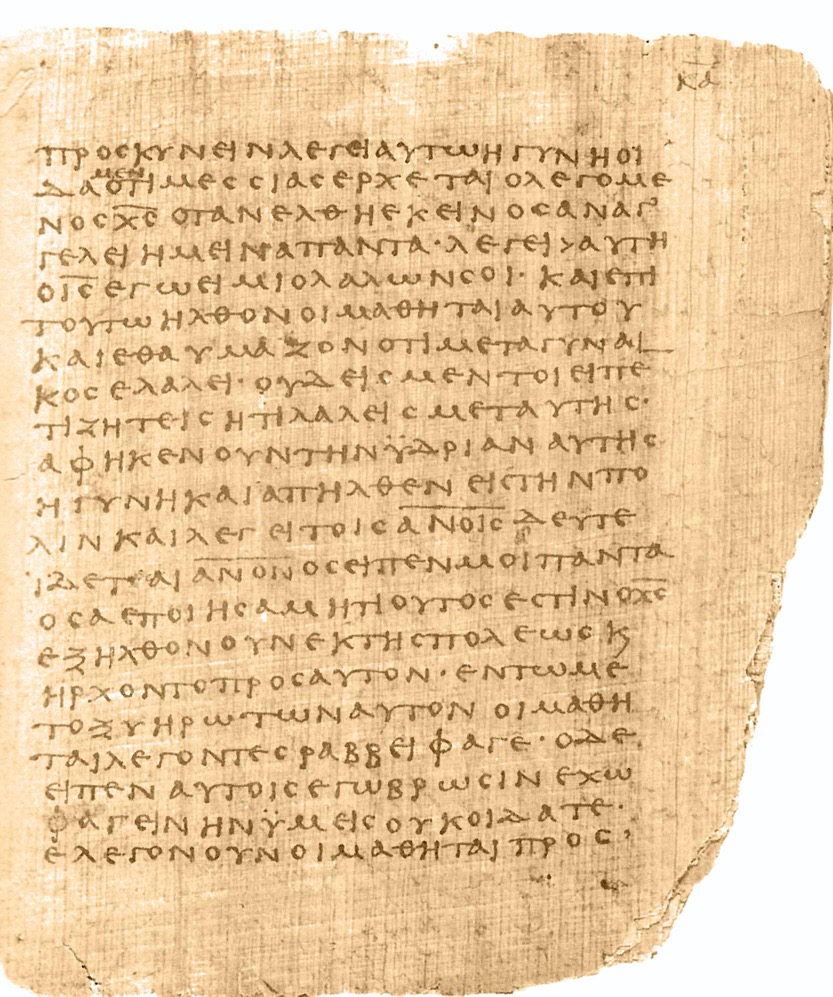 κα
ΠΡΟCΚΥΝΕΙΝΛΕΓΕΙΑΥΤΩΗΓΥΝΗΟΙ
ΜΕΝ
ΔΑΟΤΙΜΕCCΙΑCΕΡΧΕΤΑΙΟΛΕΓΟΜΕ
ΝΟCΧ̅C̅ΟΤΑΝΕΛΘΗΕΚΕΙΝΟCΑΝΑΓ'
ΓΕΛΕΙΗΜΕΙΝΑΠΑΝΤΑ·ΛΕΓΕΙ>ΑΥΤΗ
ΟΙ̅C̅ΕΓΩΕΙΜΙΟΛΑΛΩΝCΟΙ·ΚΑΙΕΠΙ
ΤΟΥΤΩΗΛΘΟΝΟΙΜΑΘΗΤΑΙΑΥΤΟΥ
ΚΑΙΕΘΑΥΜΑΖΟΝΟΤΙΜΕΤΑΓΥΝΑΙ
ΚΟCΕΛΑΛΕΙ·ΟΥΔΕΙCΜΕΝΤΟΙΕΙΠΕ
ΤΙΖΗΤΕΙCΗΤΙΛΑΛΕΙCΜΕΤΑΥΤΗC·
ΑΦΗΚΕΝΟΥΝΤΗΝΫΔΡΙΑΝΑΥΤΗC
ΗΓΥΝΗΚΑΙΑΠΗΛΘΕΝΕΙCΤΗΝΠΟ
ΛΙΝΚΑΙΛΕΓΕΙΤΟΙCΑ̅Ν̅Ο̅Ι̅C̅ΔΕΥΤΕ
ΙΔΕΤΑΙΑ̅Ν̅Ο̅Ν̅ΟCΕΙΠΕΝΜΟΙΠΑΝΤΑ
ΟCΑΕΠΟΙΗCΑΜΗΤΙΟΥΤΟCΕCΤΙΝΟΧ̅C̅
ΕΞΗΛΘΟΝΟΥΝΕΚΤΗCΠΟΛΕΩCϗ
ΗΡΧΟΝΤΟΠΡΟCΑΥΤΟΝ·ΕΝΤΩΜΕ
ΤΟΞΥΗΡΩΤΩΝΑΥΤΟΝΟΙΜΑΘΗ
ΤΑΙΛΕΓΟΝΤΕCΡΑΒΒΕΙΦΑΓΕ·ΟΔΕ
ΕΙΠΕΝΑΥΤΟΙCΕΓΩΒΡΩCΙΝΕΧΩ
ΦΑΓΕΙΝΗΝΫΜΕΙCΟΥΚΟΙΔΑΤΕ·
ΕΛΕΓΟΝΟΥΝΟΙΜΑΘΗΤΑΙΠΡΟC'